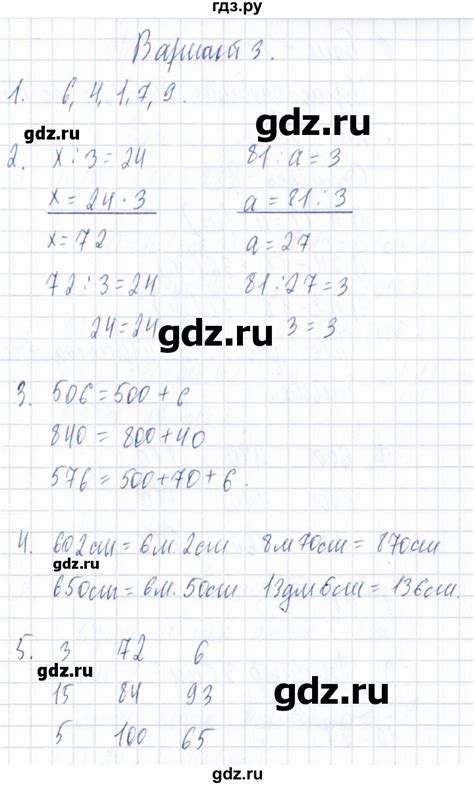 гдз.ру
Вариант 3.
1. 6, 4, 1, 7, 9.
gdz.ru gdz.ru
2. x : 3 = 24 81 : a = 3
x = 24 · 3 a = 81 : 3
x = 72 a = 27
72 : 3 = 24 81 : 27 = 3
24 = 24 3 = 3
gdz.ru
3. 506 = 500 + 6
840 = 800 + 40
576 = 500 + 70 + 6.
gdz.ru
4. 602см = 6м. 2см 8м70см = 870см
gdz.ru
650см = 6м. 50см 13дм6см = 136см.
5. 3 72 6
gdz.ru
15 84 93
gdz.ru
5 100 65
gdz.ru